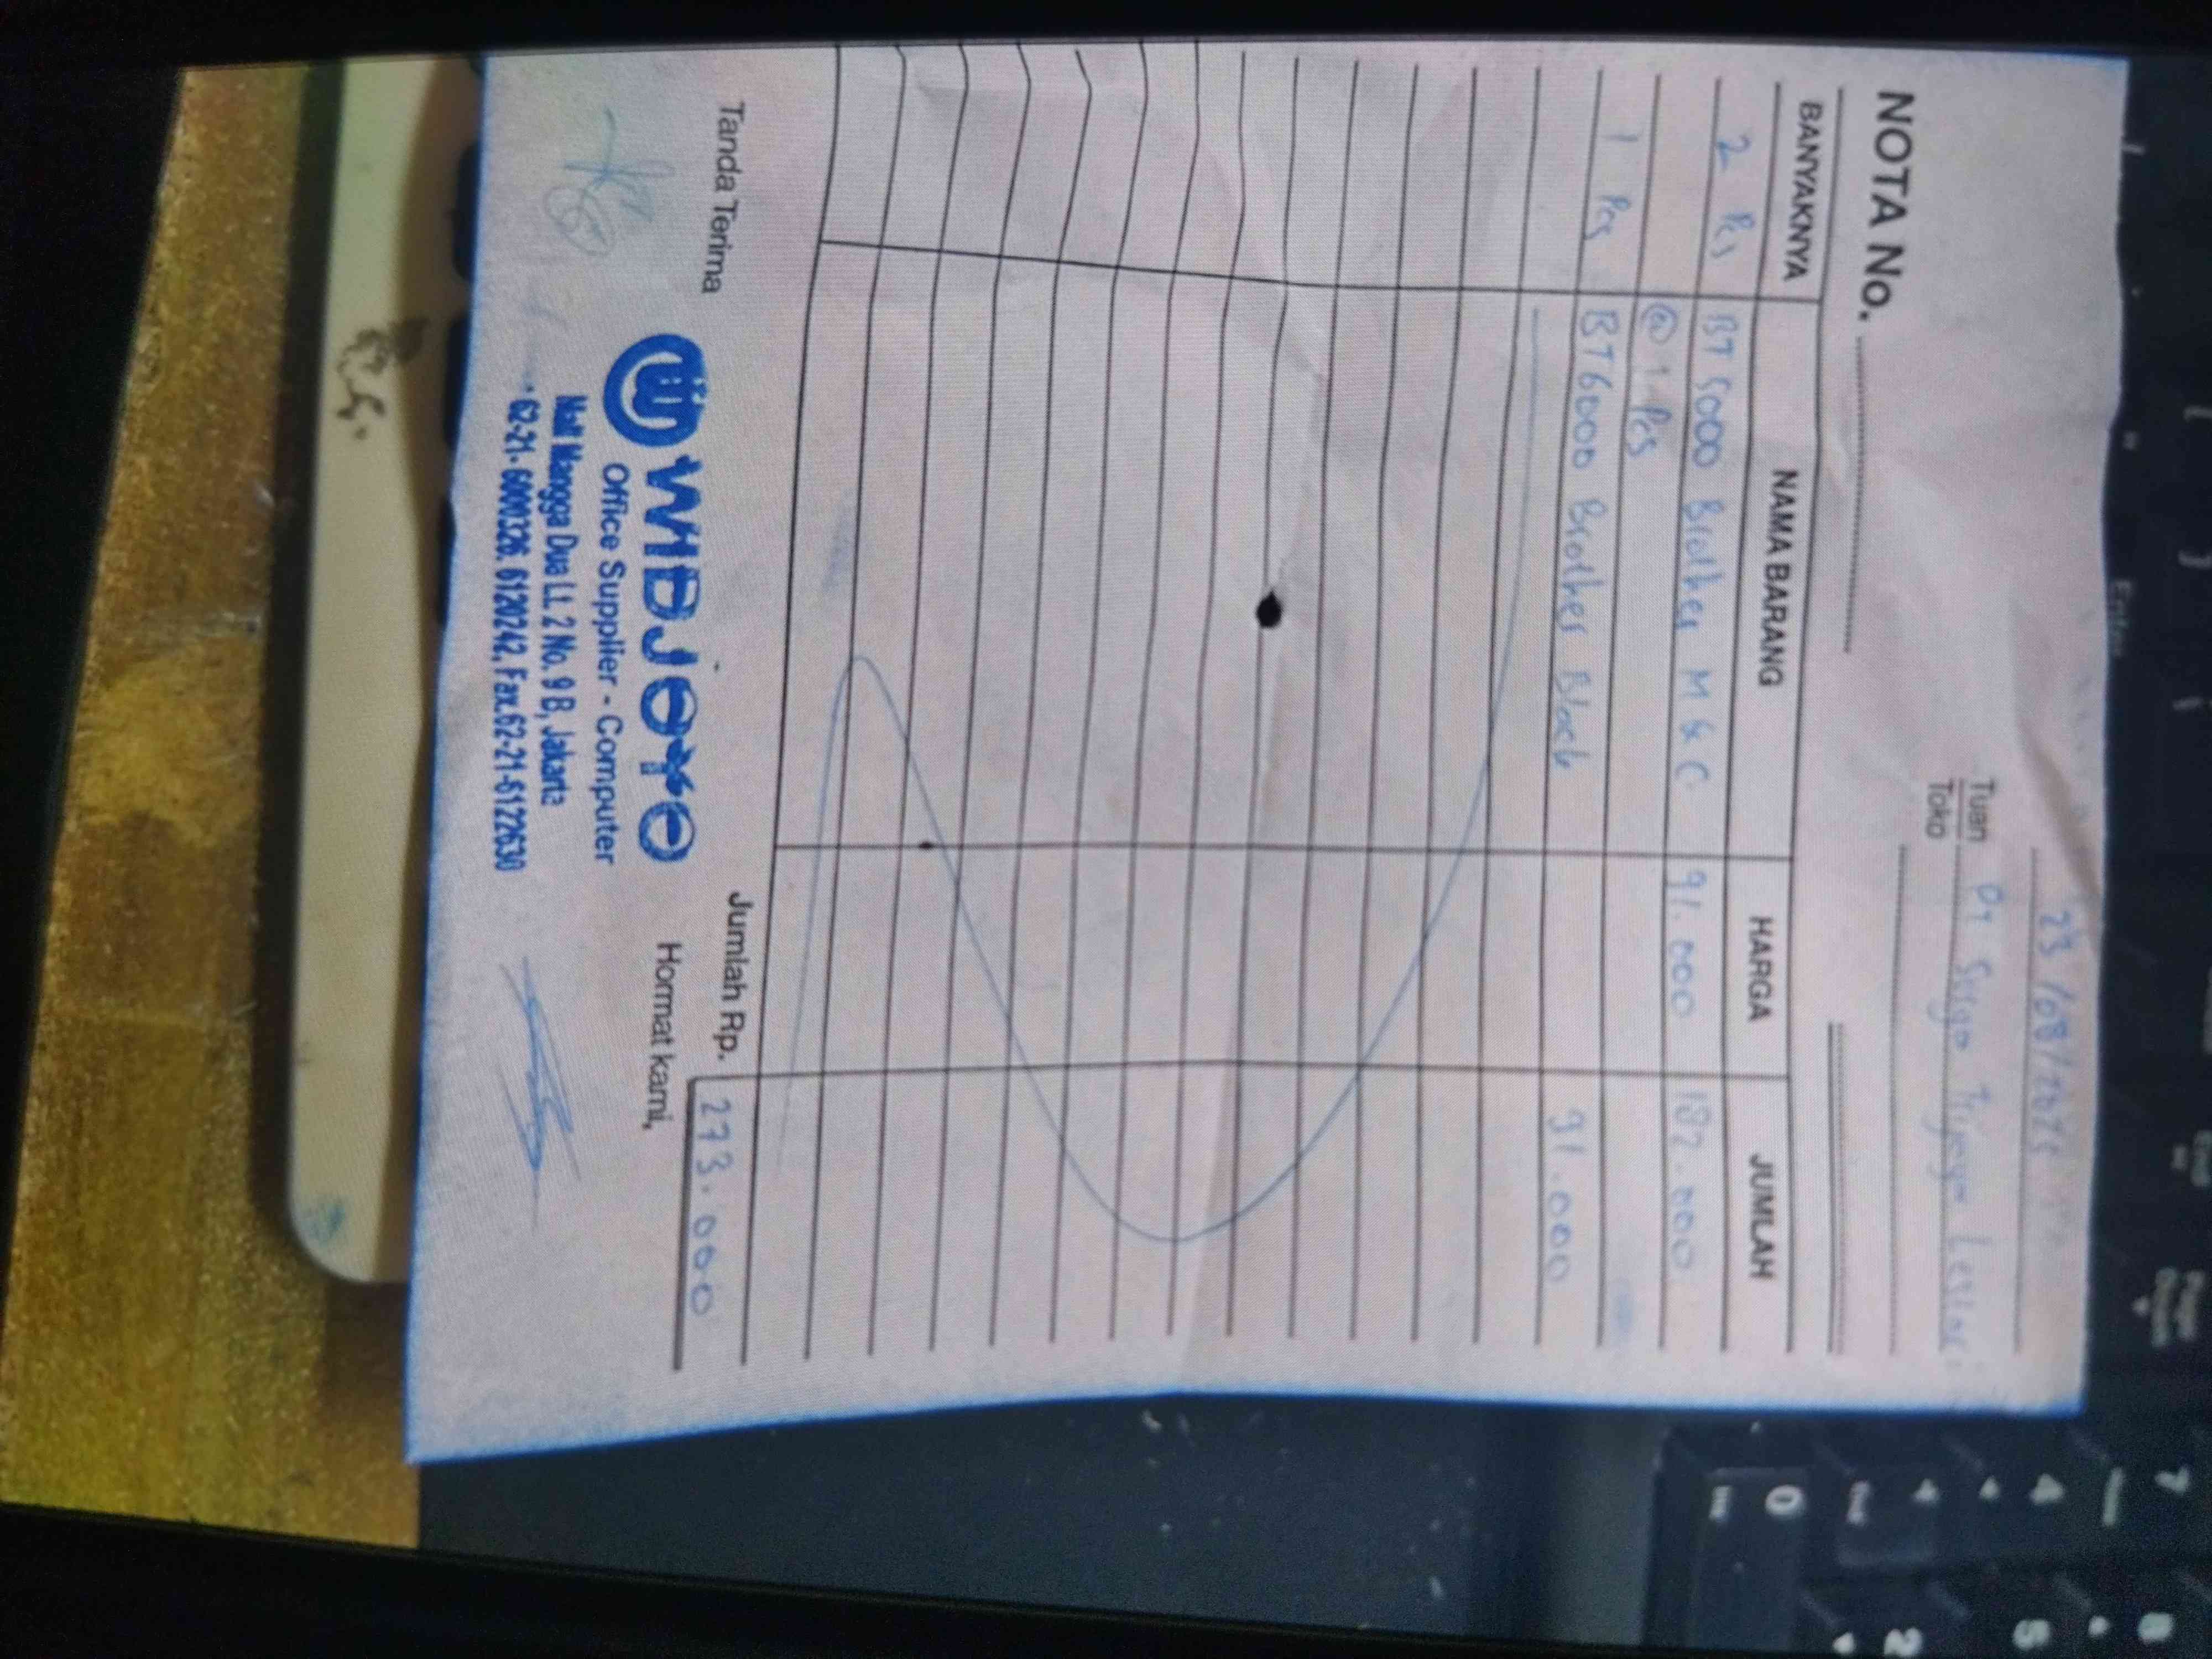 23/08/2025
Tuan PT Surya Wijaya Lestari
Toko
NOTA No.
BANYAKNYA NAMA BARANG HARGA JUMLAH
2 Pcs BT 5000 Brother M & C 91.000 182.000
@ 1 Pcs
1 Pcs BT6000 Brother Black 91.000
Jumlah Rp. 273.000
Tanda Terima Hormat kami,
WIDJOYO
Office Supplier - Computer
Mall Mangga Dua Lt. 2 No. 9 B, Jakarta
62-21-6000326, 6120242, Fax.62-21-6122630
Enter
End
0
Ins
7
4
8
5
2